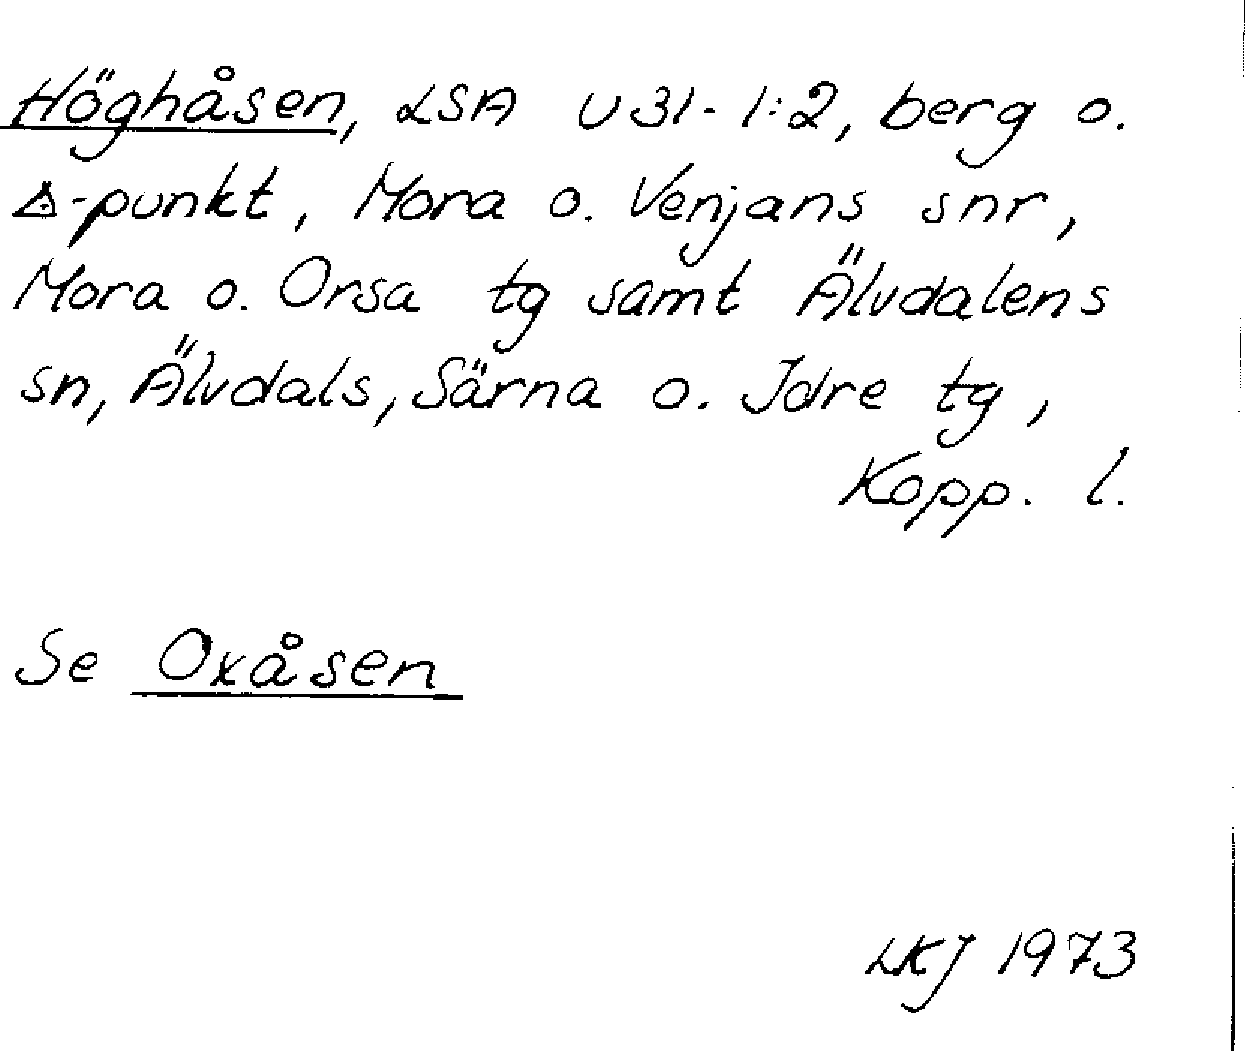 Höghåsen, LSA U31-1:2, berg o.
△-punkt, Mora o. Venjans snr,
Mora o. Orsa tg samt Älvdalens
sn, Älvdals, Särna o. Idre tg,
Kopp. l.
Se Oxåsen
LKJ 1973